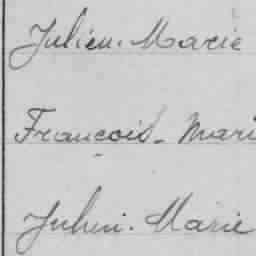 Julien. Marie
François. Mari
Julien. Marie